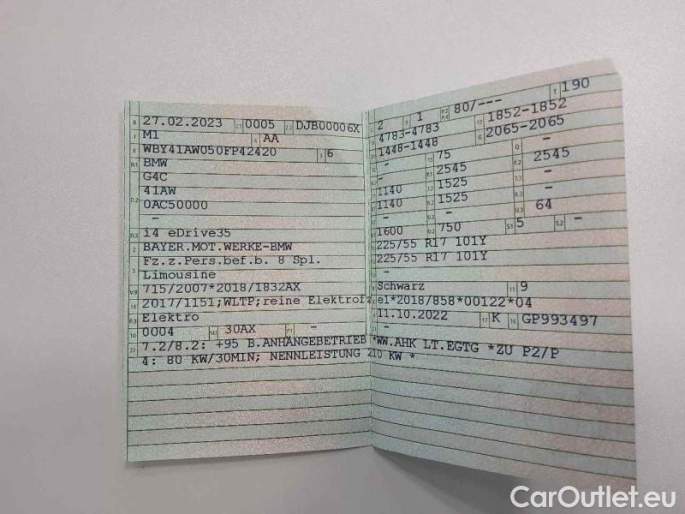 27.02.2023 0005 DJB00006X
M1 AA
WBY41AW050FP42420 6
BMW
G4C
41AW
0AC50000
-
i4 eDrive35
BAYER.MOT.WERKE-BMW
Fz.z.Pers.bef.b. 8 Spl.
Limousine
715/2007*2018/1832AX
2017/1151;WLTP;reine Elektrofz
Elektro
0004 30AX -
7.2/8.2: +95 B.ANHÄNGEBETRIEB *WW.AHK LT.EGTG *ZU P2/P
4: 80 KW/30MIN; NENNLEISTUNG 210 KW *
2 1 80/--- 190
4783-4783 1852-1852
1448-1448 2065-2065
- 75 -
- 2545 2545
1140 1525 -
1140 1525 -
- - 64
1600 750 5 -
225/55 R17 101Y
225/55 R17 101Y
-
Schwarz 9
e1*2018/858*00122*04
11.10.2022 K GP993497
CarOutlet.eu